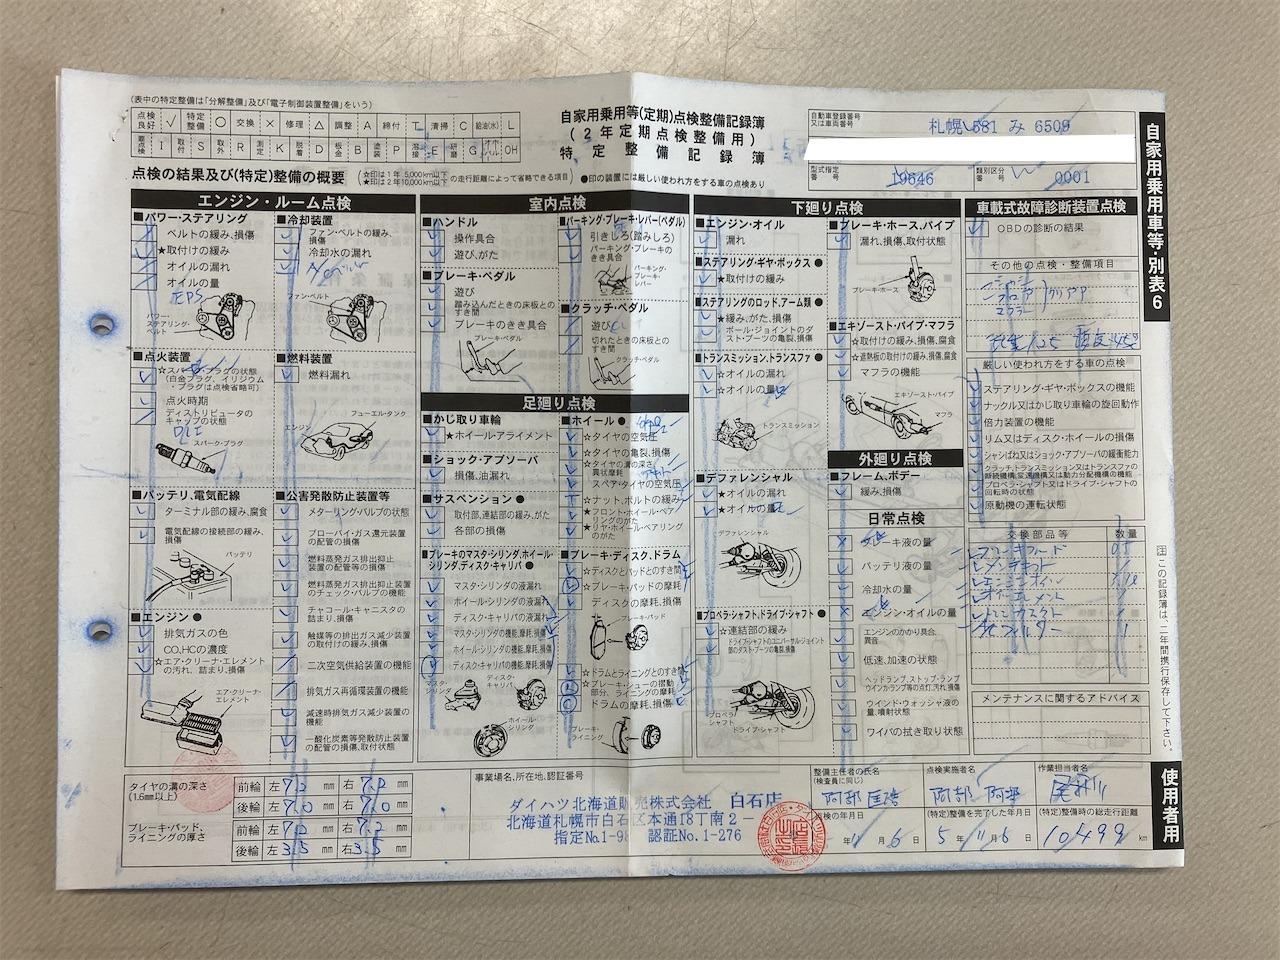 (表中の特定整備は「分解整備」及び「電子制御装置整備」をいう)
点検良好 レ 特定整備 ○ 交換 × 修理 △ 調整 A 締付 T 清掃 C 給油(水) L
要点検 I 取付 S 取外 R 測定 K 脱着 D 板金 B 塗装 P 溶接 E 研磨 G OH
自家用乗用等(定期)点検整備記録簿
(2年定期点検整備用)
特定整備記録簿
自動車登録番号又は車両番号
札幌 581 み 6509
型式指定番号 19646 類別区分番号 0001
点検の結果及び(特定)整備の概要
(☆印は1年5,000km以下 ★印は2年10,000km以下 の走行距離によって省略できる項目)
●印の装置には厳しい使われ方をする車の点検あり
自家用乗用車等・別表6
エンジン・ルーム点検
■パワー・ステアリング
ベルトの緩み,損傷
★取付けの緩み
オイルの漏れ
オイルの量
EPS
パワー・ステアリング・ベルト
■点火装置
☆スパーク・プラグの状態
(白金プラグ、イリジウム・プラグは点検省略可)
点火時期
ディストリビュータのキャップの状態
DLI
スパーク・プラグ
■バッテリ,電気配線
ターミナル部の緩み,腐食
電気配線の接続部の緩み,損傷
バッテリ
■エンジン ●
排気ガスの色
CO,HCの濃度
☆エア・クリーナ・エレメントの汚れ、詰まり,損傷
エア・クリーナ・エレメント
■冷却装置
ファン・ベルトの緩み,損傷
冷却水の漏れ
ファン・ベルト
■燃料装置
燃料漏れ
フューエル・タンク
エンジン
■公害発散防止装置等
メターリング・バルブの状態
ブローバイ・ガス還元装置の配管の損傷
燃料蒸発ガス排出抑止装置の配管等の損傷
燃料蒸発ガス排出抑止装置のチェック・バルブの機能
チャコール・キャニスタの詰まり,損傷
触媒等の排出ガス減少装置の取付けの緩み,損傷
二次空気供給装置の機能
排気ガス再循環装置の機能
減速時排気ガス減少装置の機能
一酸化炭素等発散防止装置の配管の損傷,取付状態
室内点検
■ハンドル
操作具合
遊び,がた
■ブレーキ・ペダル
遊び
踏み込んだときの床板とのすき間
ブレーキのきき具合
ブレーキ・ペダル
■パーキング・ブレーキ・レバー(ペダル)
引きしろ(踏みしろ)
パーキング・ブレーキのきき具合
パーキング・ブレーキ・レバー
■クラッチ・ペダル
遊び
切れたときの床板とのすき間
クラッチ・ペダル
足廻り点検
■かじ取り車輪
★ホイール・アライメント
■ショック・アブソーバ
損傷,油漏れ
■サスペンション ●
取付部,連結部の緩み,がた
各部の損傷
■ブレーキのマスタ・シリンダ,ホイール・シリンダ,ディスク・キャリパ ●
マスタ・シリンダの液漏れ
ホイール・シリンダの液漏れ
ディスク・キャリパの液漏れ
マスタ・シリンダの機能,摩耗,損傷
ホイール・シリンダの機能,摩耗,損傷
ディスク・キャリパの機能,摩耗,損傷
マスタ・シリンダ
ディスク・キャリパ
ホイール・シリンダ
■ホイール ●
☆タイヤの空気圧
☆タイヤの亀裂,損傷
☆タイヤの溝の深さ,異状摩耗
スペア・タイヤの空気圧
☆ナット,ボルトの緩み
★フロント・ホイール・ベアリングのがた
★リヤ・ホイール・ベアリングのがた
■ブレーキ・ディスク,ドラム
☆ディスクとパッドとのすき間
☆ブレーキ・パッドの摩耗
ディスクの摩耗,損傷
ブレーキ・パッド
☆ドラムとライニングとのすき間
☆ブレーキ・シューの摺動部分、ライニングの摩耗
ドラムの摩耗,損傷
ブレーキ・ライニング
下廻り点検
■エンジン・オイル
漏れ
■ステアリング・ギヤ・ボックス ●
★取付けの緩み
■ステアリングのロッド,アーム類 ●
★緩み,がた,損傷
ボール・ジョイントのダスト・ブーツの亀裂,損傷
■トランスミッション,トランスファ ●
☆オイルの漏れ
☆オイルの量
トランスミッション
■デファレンシャル
★オイルの漏れ
★オイルの量
デファレンシャル
■プロペラ・シャフト,ドライブ・シャフト ●
☆連結部の緩み
ドライブ・シャフトのユニバーサル・ジョイント部のダスト・ブーツの亀裂,損傷
プロペラ・シャフト
ドライブ・シャフト
■ブレーキ・ホース,パイプ
漏れ,損傷,取付状態
ブレーキ・ホース
■エキゾースト・パイプ・マフラ
☆取付けの緩み,損傷,腐食
☆遮熱板の取付けの緩み,損傷,腐食
マフラの機能
エキゾースト・パイプ
マフラ
外廻り点検
■フレーム,ボデー
緩み,損傷
日常点検
ブレーキ液の量
バッテリ液の量
冷却水の量
エンジン・オイルの量
エンジンのかかり具合,異音
低速、加速の状態
ヘッドランプ、ストップ・ランプウインカランプ等の点灯,汚れ,損傷
ウインド・ウォッシャ液の量,噴射状態
ワイパの拭き取り状態
車載式故障診断装置点検
OBDの診断の結果
その他の点検・整備項目
厳しい使われ方をする車の点検
ステアリング・ギヤ・ボックスの機能
ナックル又はかじ取り車輪の旋回動作
倍力装置の機能
リム又はディスク・ホイールの損傷
シャシばね又はショック・アブソーバの緩衝能力
クラッチ,トランスミッション又はトランスファの断続機構,変速機構又は動力分配機構の機能
プロペラ・シャフト又はドライブ・シャフトの回転時の状態
原動機の運転状態
交換部品等 数量
ブレーキフルード 0.5
エンジンオイル
メンテナンスに関するアドバイス
注 この記録簿は、二年間携行保存して下さい。
使用者用
タイヤの溝の深さ(1.6mm以上)
前輪 左7.0 mm 右7.0 mm
後輪 左7.0 mm 右7.0 mm
ブレーキ・パッド、ライニングの厚さ
前輪 左7.2 mm 右7.2 mm
後輪 左3.5 mm 右3.5 mm
事業場名,所在地,認証番号
ダイハツ北海道販売株式会社 白石店
北海道札幌市白石区本通18丁南2-
指定No.1-98 認証No.1-276
整備主任者の氏名(検査員に同じ)
点検実施者名
作業担当者名
点検の年月日
年 11月 6日
(特定)整備を完了した年月日
5年 11月 6日
(特定)整備時の総走行距離
10,499 km